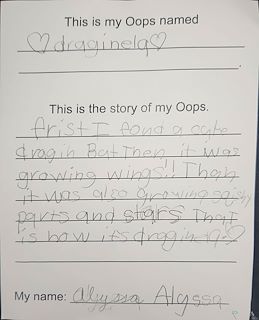 This is my Oops named
♡draginela♡
This is the story of my Oops.
frist I found a cute
dragin But Then it was
growing wings!! Then
it was also growing squishy
parts and stars That
is how its dragin-a♡
My name: alyssa Alyssa